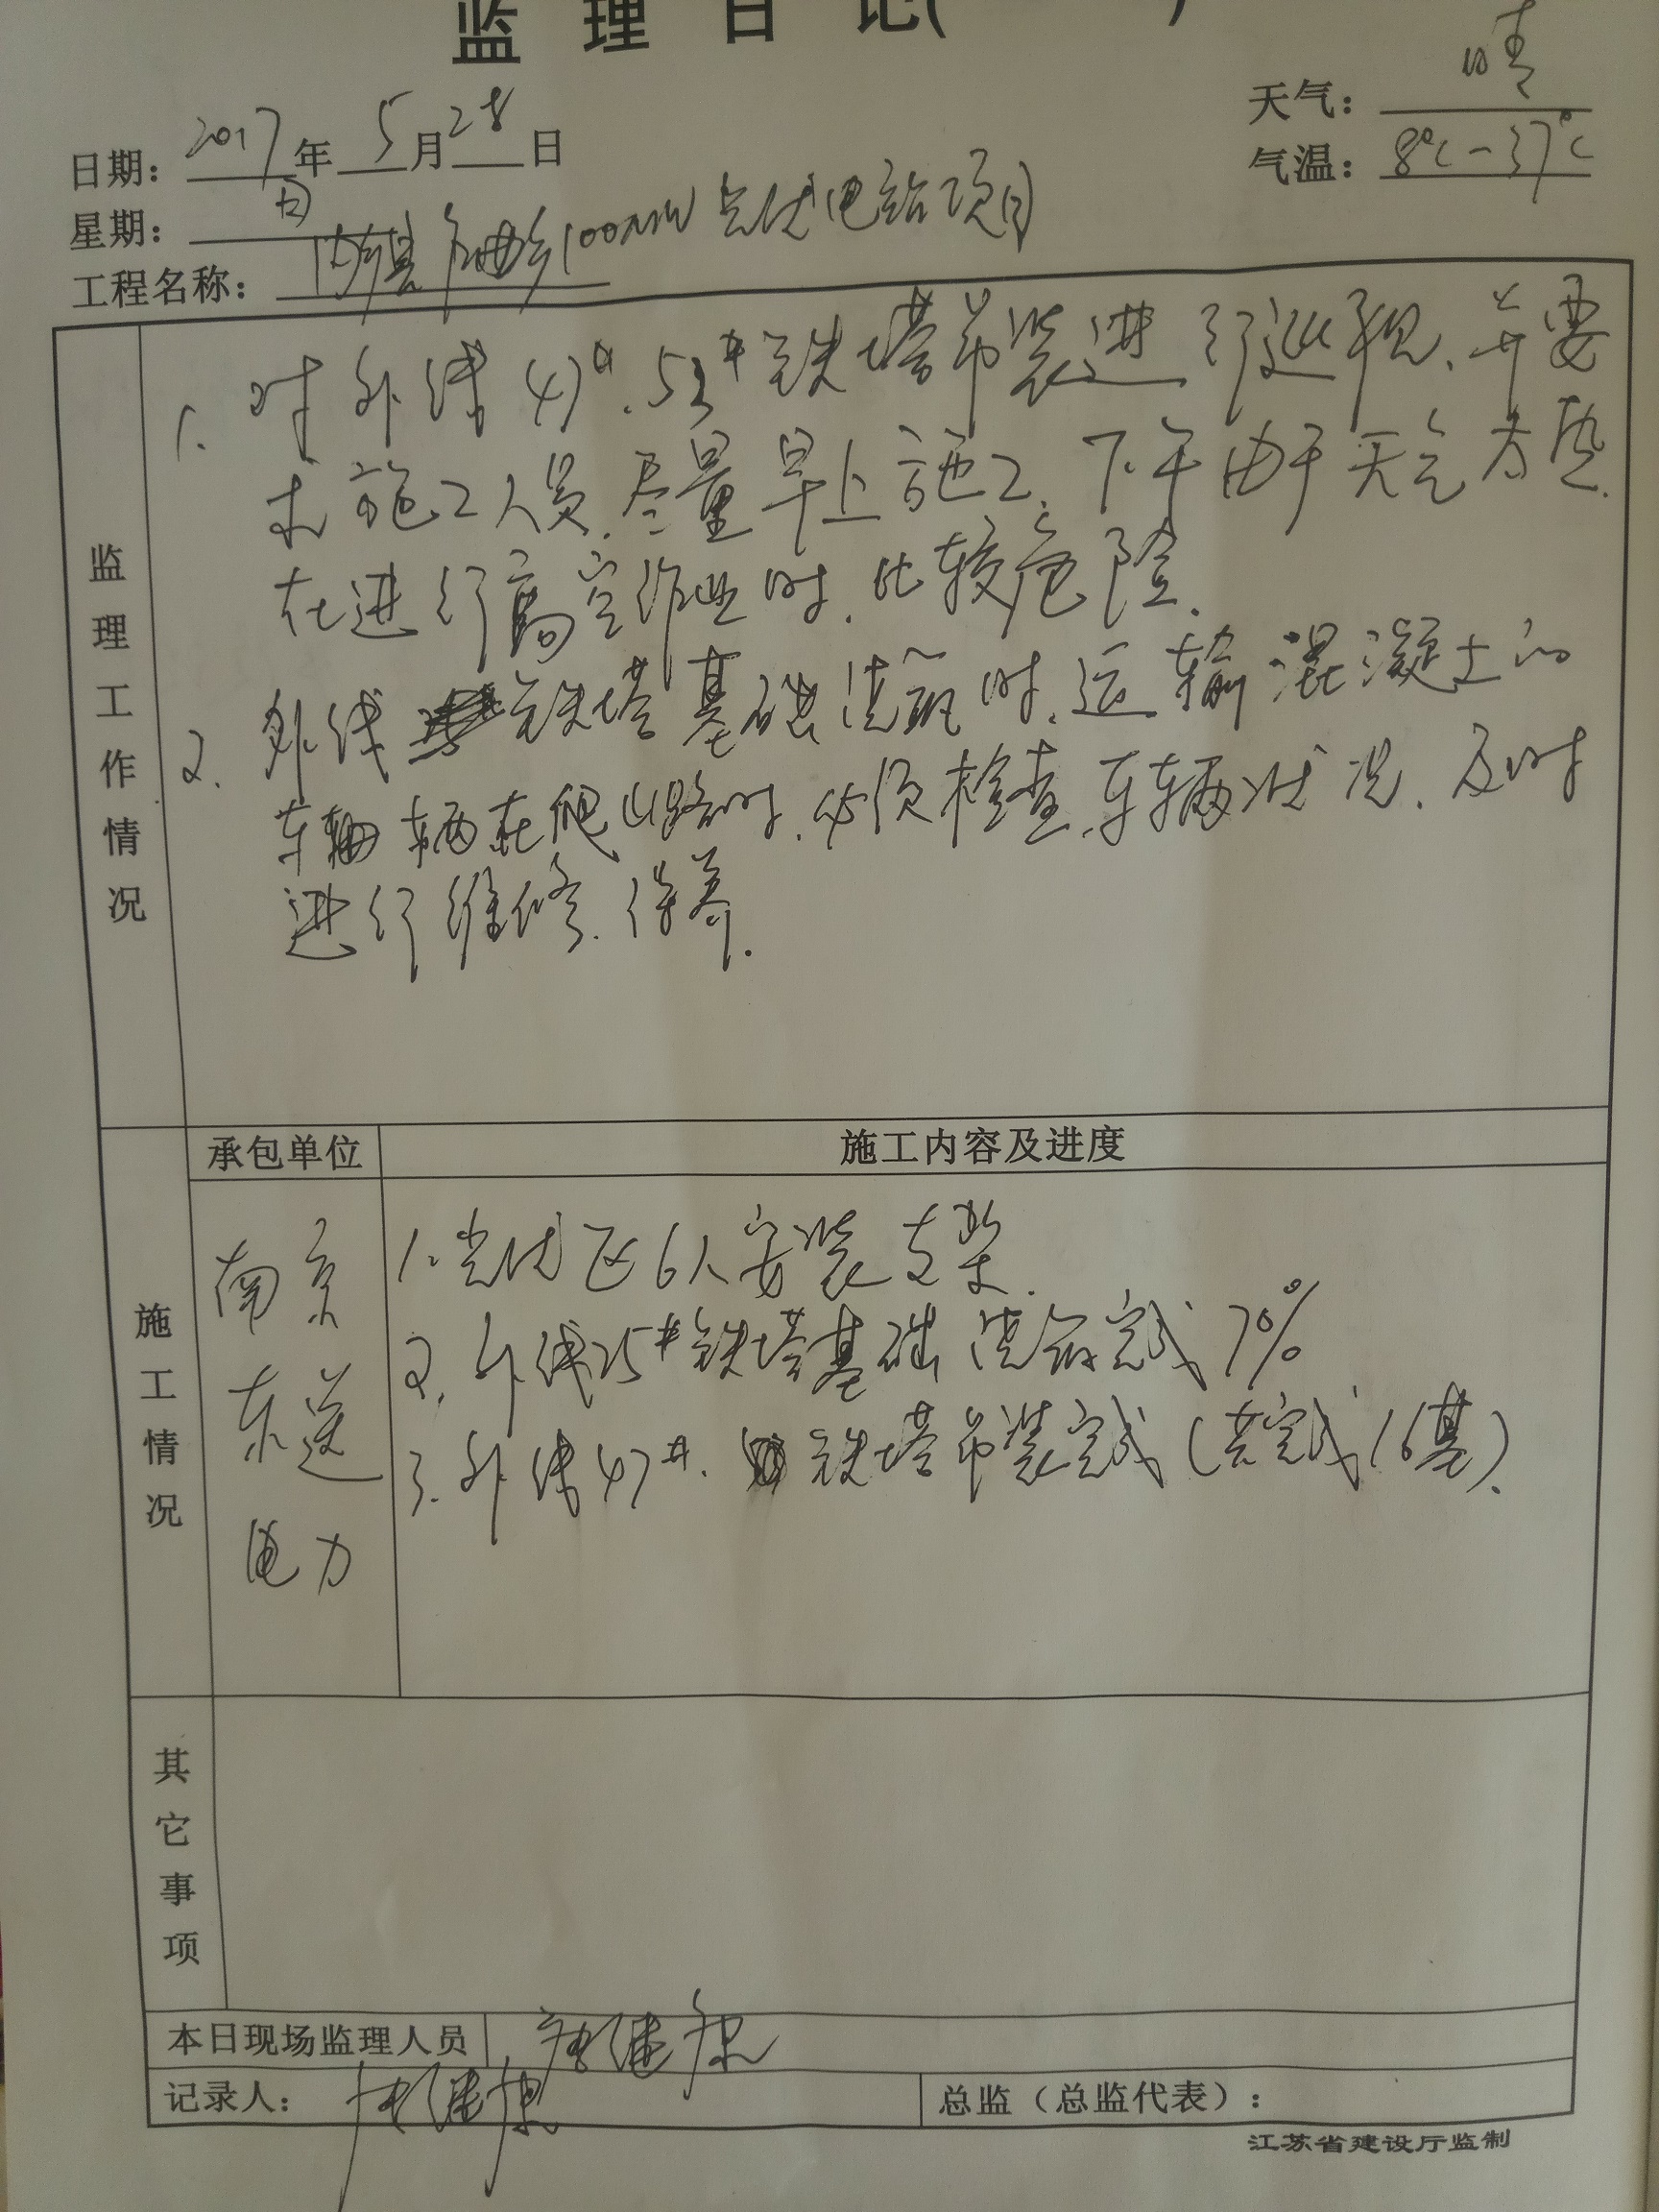 监理日记( )
日期：2017年5月28日
天气：晴
星期：日
气温：8℃-37℃
工程名称：县乡100MW光伏电站项目
监理工作情况
1. 对外线47#.53#铁塔吊装进行巡视.并要
求施工人员.尽量早上施工.下午由于天气炎热.
在进行高空作业时.比较危险.
2. 外线铁塔基础浇筑时.运输混凝土的
车辆辆在爬山路时.必须检查.车辆状况.及时
进行维修.保养.
施工情况
承包单位
施工内容及进度
南京
东送
电力
1.光伏区6人安装支架.
2.外线25#铁塔基础浇筑完成70%
3.外线47#.铁塔吊装完成(共完成16基).
其它事项
本日现场监理人员
记录人：
总监（总监代表）：
江苏省建设厅监制